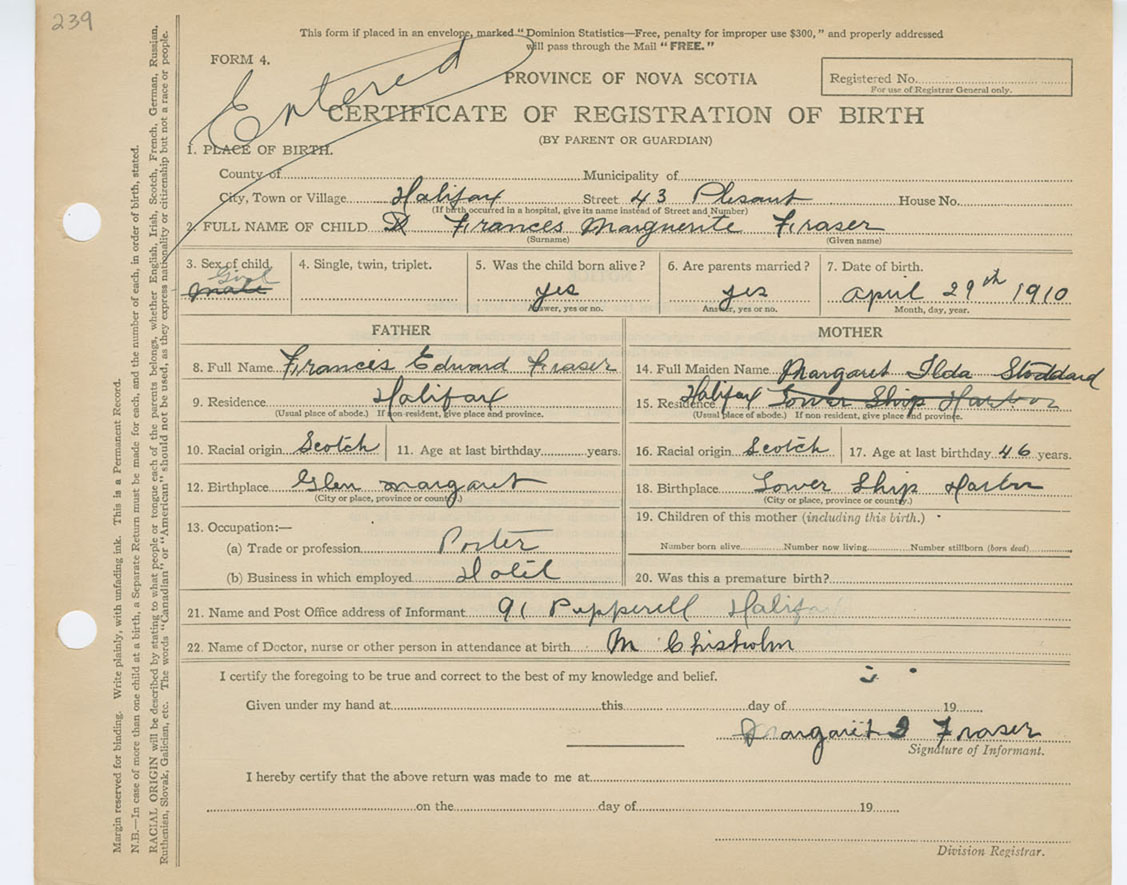 239
This form if placed in an envelope, marked "Dominion Statistics—Free, penalty for improper use $300," and properly addressed
will pass through the Mail "FREE."
FORM 4.
Entered
PROVINCE OF NOVA SCOTIA
Registered No.
For use of Registrar General only.
CERTIFICATE OF REGISTRATION OF BIRTH
(BY PARENT OR GUARDIAN)
1. PLACE OF BIRTH.
County of Municipality of
City, Town or Village Halifax Street 43 Plesant House No.
(If birth occurred in a hospital, give its name instead of Street and Number)
2. FULL NAME OF CHILD Frances Marguerite Fraser
(Surname) (Given name)
3. Sex of child. 4. Single, twin, triplet. 5. Was the child born alive? 6. Are parents married? 7. Date of birth.
Girl
male yes yes April 29th 1910
Answer, yes or no. Answer, yes or no. Month, day, year.
FATHER MOTHER
8. Full Name Francis Edward Fraser 14. Full Maiden Name Margaret Ilda Stoddard
9. Residence Halifax 15. Residence Halifax Lower Ship Harbor
(Usual place of abode.) If non resident, give place and province. (Usual place of abode.) If non resident, give place and province.
10. Racial origin Scotch 11. Age at last birthday years. 16. Racial origin Scotch 17. Age at last birthday 46 years.
12. Birthplace Glen Margaret 18. Birthplace Lower Ship Harbor
(City or place, province or country.) (City or place, province or country.)
13. Occupation:— 19. Children of this mother (including this birth.)
(a) Trade or profession Porter Number born alive Number now living Number stillborn (born dead)
(b) Business in which employed Hotel 20. Was this a premature birth?
21. Name and Post Office address of Informant 91 Pepperell Halifax
22. Name of Doctor, nurse or other person in attendance at birth M Chisholm
I certify the foregoing to be true and correct to the best of my knowledge and belief.
Given under my hand at this day of 19
Margaret I Fraser
Signature of Informant.
I hereby certify that the above return was made to me at
on the day of 19
Division Registrar.
Margin reserved for binding. Write plainly, with unfading ink. This is a Permanent Record.
N.B.—In case of more than one child at a birth, a Separate Return must be made for each, and the number of each, in order of birth, stated.
RACIAL ORIGIN will be described by stating to what people or tongue each of the parents belongs, whether English, Irish, Scotch, French, German, Russian,
Ruthenian, Slovak, Galician, etc. The words "Canadian" or "American" should not be used, as they express nationality or citizenship but not a race or people.